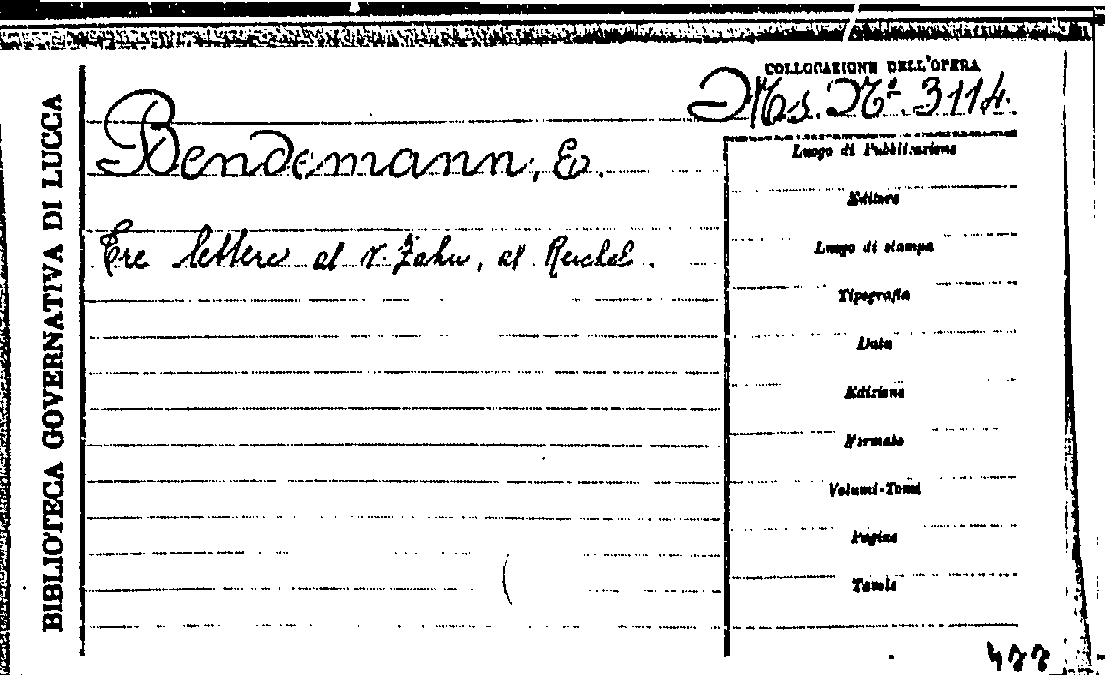 BIBLIOTECA GOVERNATIVA DI LUCCA
COLLOCAZIONE DELL'OPERA
Ms. N.º 3114.
Bendemann, E.
Tre lettere al v. Zahn, al Reichel.
Luogo di Pubblicazione
Editore
Luogo di stampa
Tipografia
Data
Edizione
Formato
Volumi-Tomi
Pagine
Tavole
477